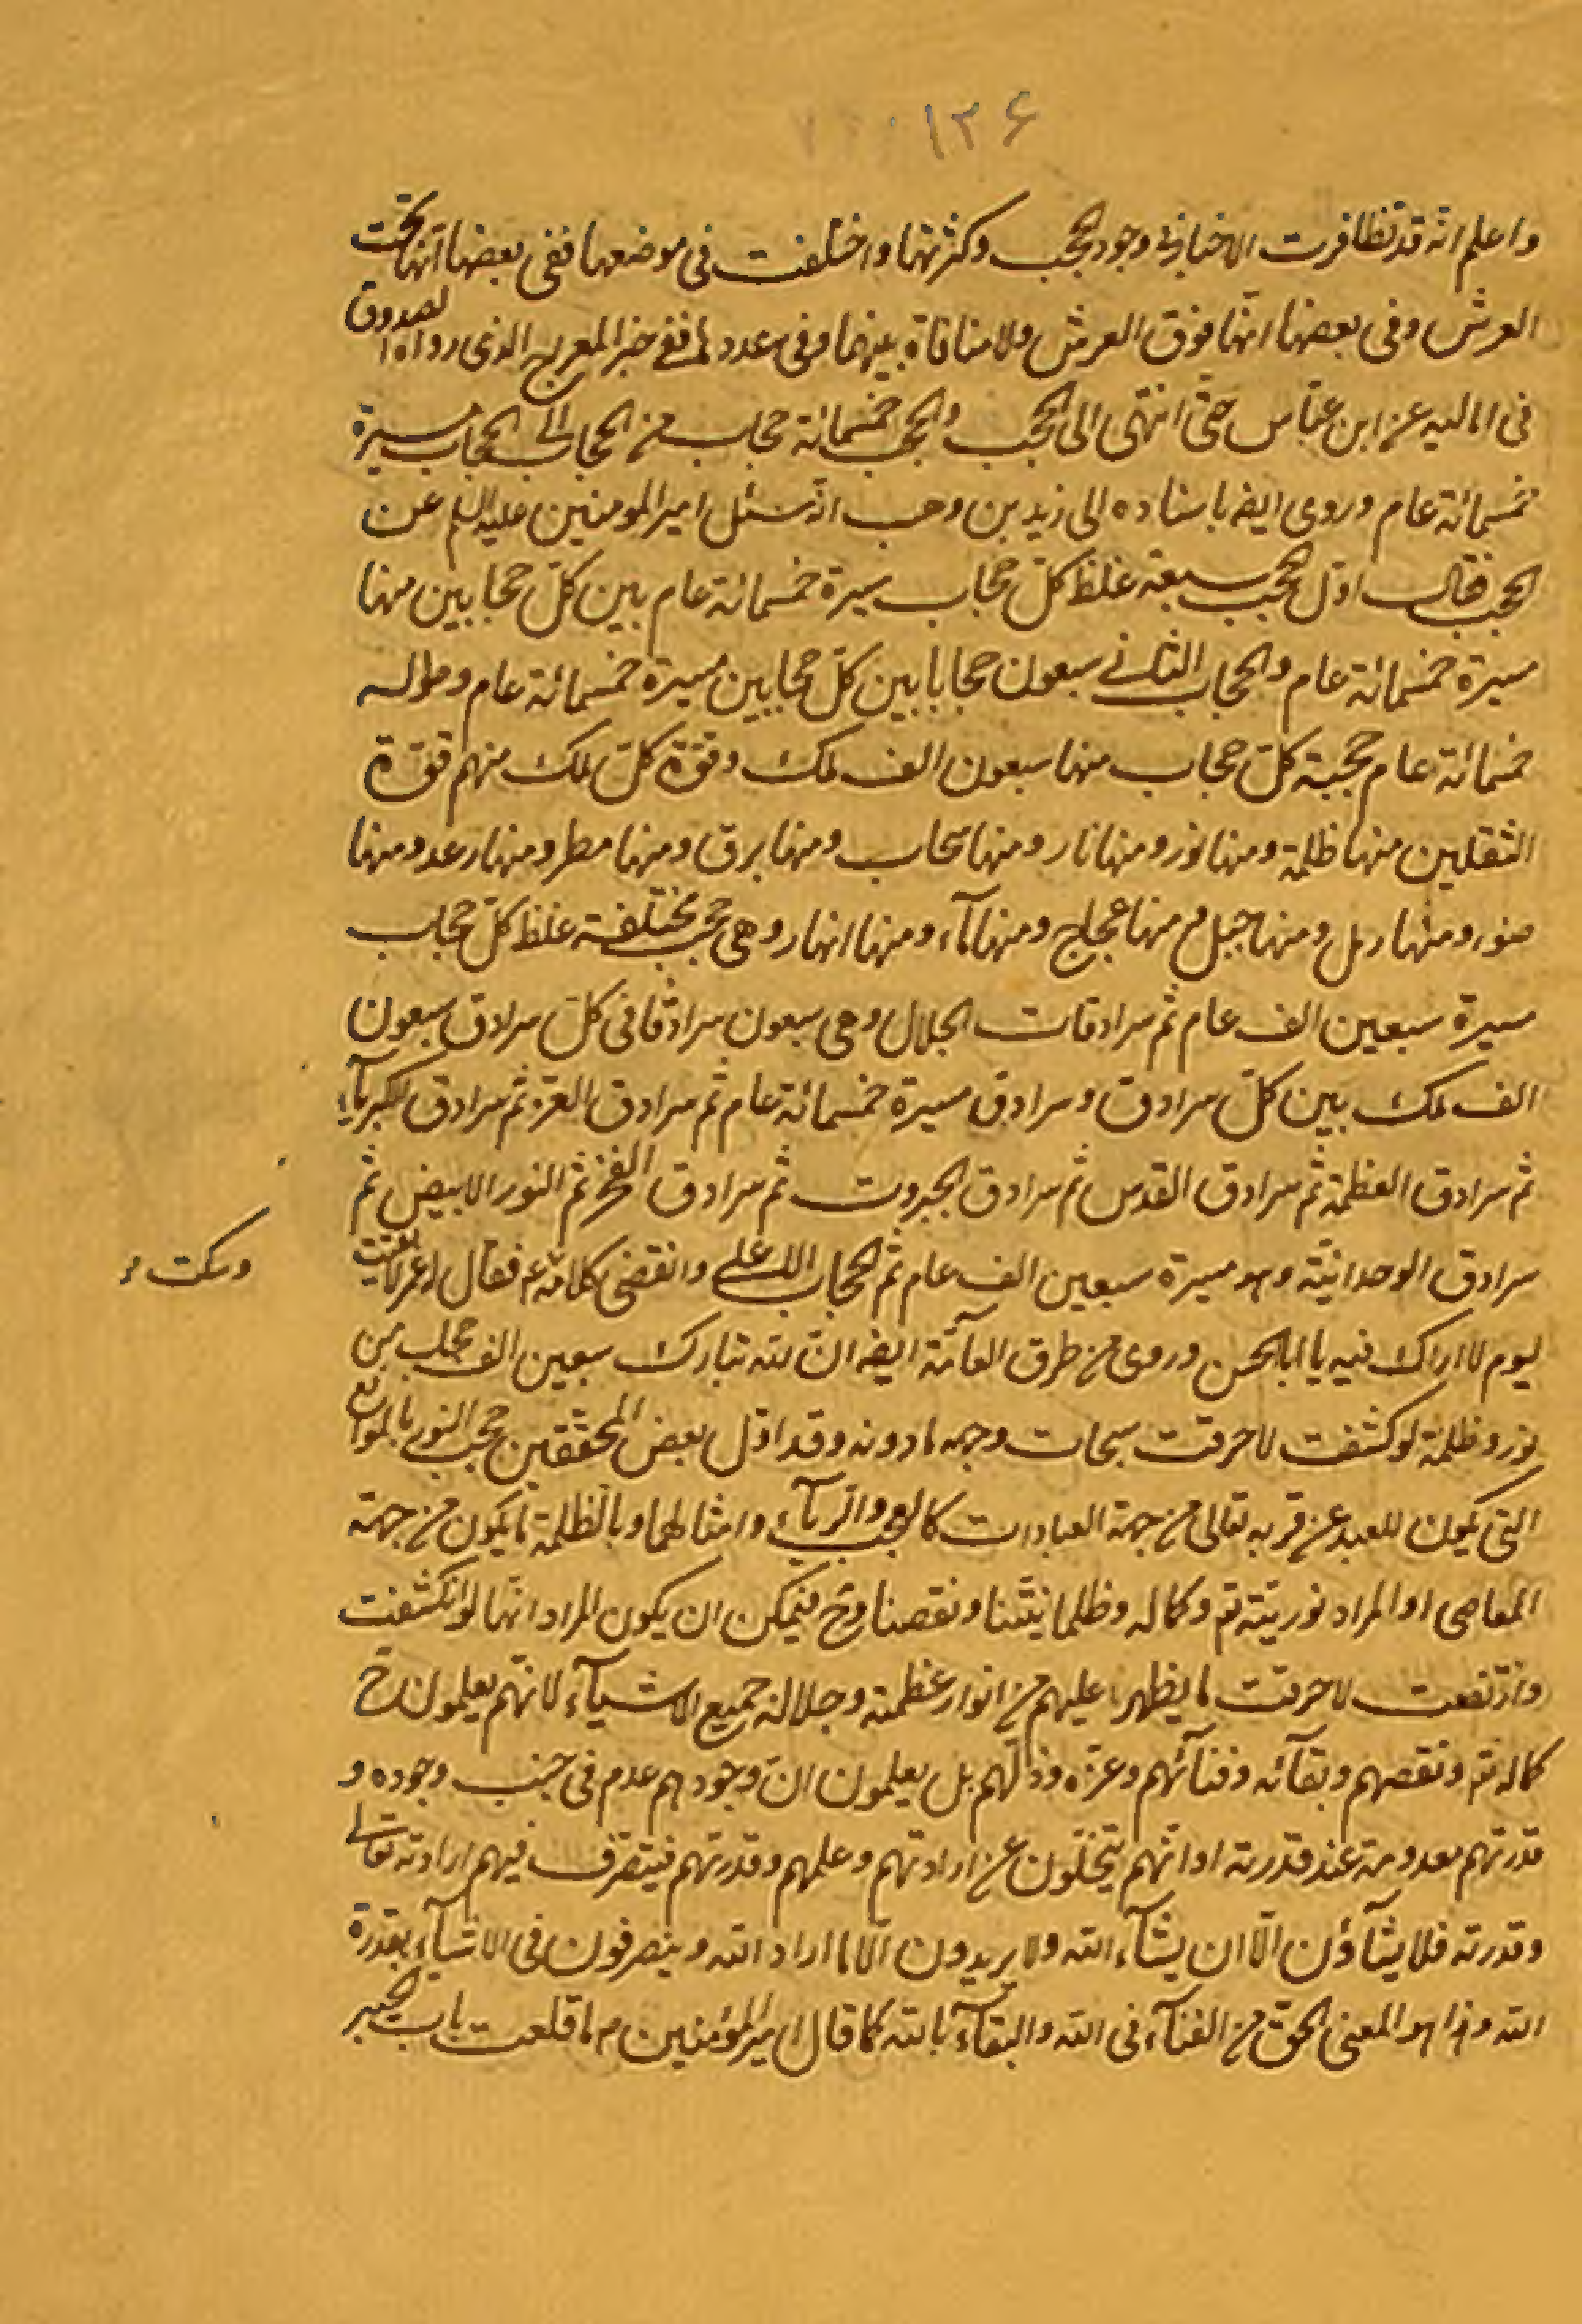 ١٣۶
واعلم انّه قد تظافرت الاخبار فى وجود الحجب وكثرتها واختلفت فى موضعها ففى بعضها انّها تحت
العرش وفى بعضها انّها فوق العرش ولا منافاة بينهما وفى عددها ففى خبر المعراج الذى رواه الصدوق
فى اماليه عن ابن عبّاس حتّى انتهى الى الحجب والحجب خمسمائة حجاب من الحجاب الى الحجاب مسيرة
خمسمائة عام وروى ايضه باسناده الى زيد بن وهب انّه سئل امير المؤمنين عليه السلم عن
الحجب فقال اوّل الحجب سبعة غلظ كلّ حجاب مسيرة خمسمائة عام بين كلّ حجابين منها
مسيرة خمسمائة عام والحجاب الثانى سبعون حجابا بين كلّ حجابين مسيرة خمسمائة عام وطوله
خمسمائة عام حجبة كلّ حجاب منها سبعون الف ملك وقوّة كلّ ملك منهم قوّة
الثقلين منها ظلمة ومنها نور ومنها نار ومنها سحاب ومنها برق ومنها مطر ومنها رعد ومنها
ضوء ومنها رمل ومنها جبل ومنها عجاج ومنها ماء ومنها انهار وهى حجب مختلفة غلظ كلّ حجاب
مسيرة سبعين الف عام ثم سرادقات الجلال وهى سبعون سرادقا فى كلّ سرادق سبعون
الف ملك بين كلّ سرادق وسرادق مسيرة خمسمائة عام ثم سرادق العزّ ثم سرادق الكبرياء
ثم سرادق العظمة ثم سرادق القدس ثم سرادق الجبروت ثم سرادق الفخر ثم النور الابيض ثم
سرادق الوحدانيّة وهو مسيرة سبعين الف عام ثم الحجاب الاعلى وانقضى كلامه ع فقال له عمر لا بقيت
وسكت
ليوم لا اراك فيه يا ابا الحسن وروى من طرق العامّة ايضه انّ لله تبارك سبعين الف حجاب من
نور وظلمة لو كشفت لاحرقت سبحات وجهه ما دونه وقد اوّل بعض المحققين حجب النور بالموانع
التى يكون للعبد عن قربه تعالى من جهة العبادات كالعجب والرّياء وامثالهما وبالظلمة ما يكون من جهة
المعاصى او المراد نوريّته تم وكماله وظلمانيّتنا ونقصنا وح فيمكن ان يكون المراد انّها لو انكشفت
وارتفعت لاحرقت ما يظهر عليهم من انوار عظمته وجلاله جميع الاشياء لانّهم يعلمون ح
كماله تم ونقصهم وبقائه وفنائهم وعزّه وذلّهم بل يعلمون انّ وجودهم عدم فى جنب وجوده و
قدرتهم معدومة عند قدرته او انّهم يتخلّون عن ارادتهم وعلمهم وقدرتهم فيتصرّف فيهم ارادته تعالى
وقدرته فلا يشاؤن الّا ان يشاء الله ولا يريدون الّا ما اراد الله ويتصرفون فى الاشياء بقدرة
الله وهذا هو المعنى الحق من الفناء فى الله والبقاء بالله كما قال امير المؤمنين م ما قلعت باب خيبر